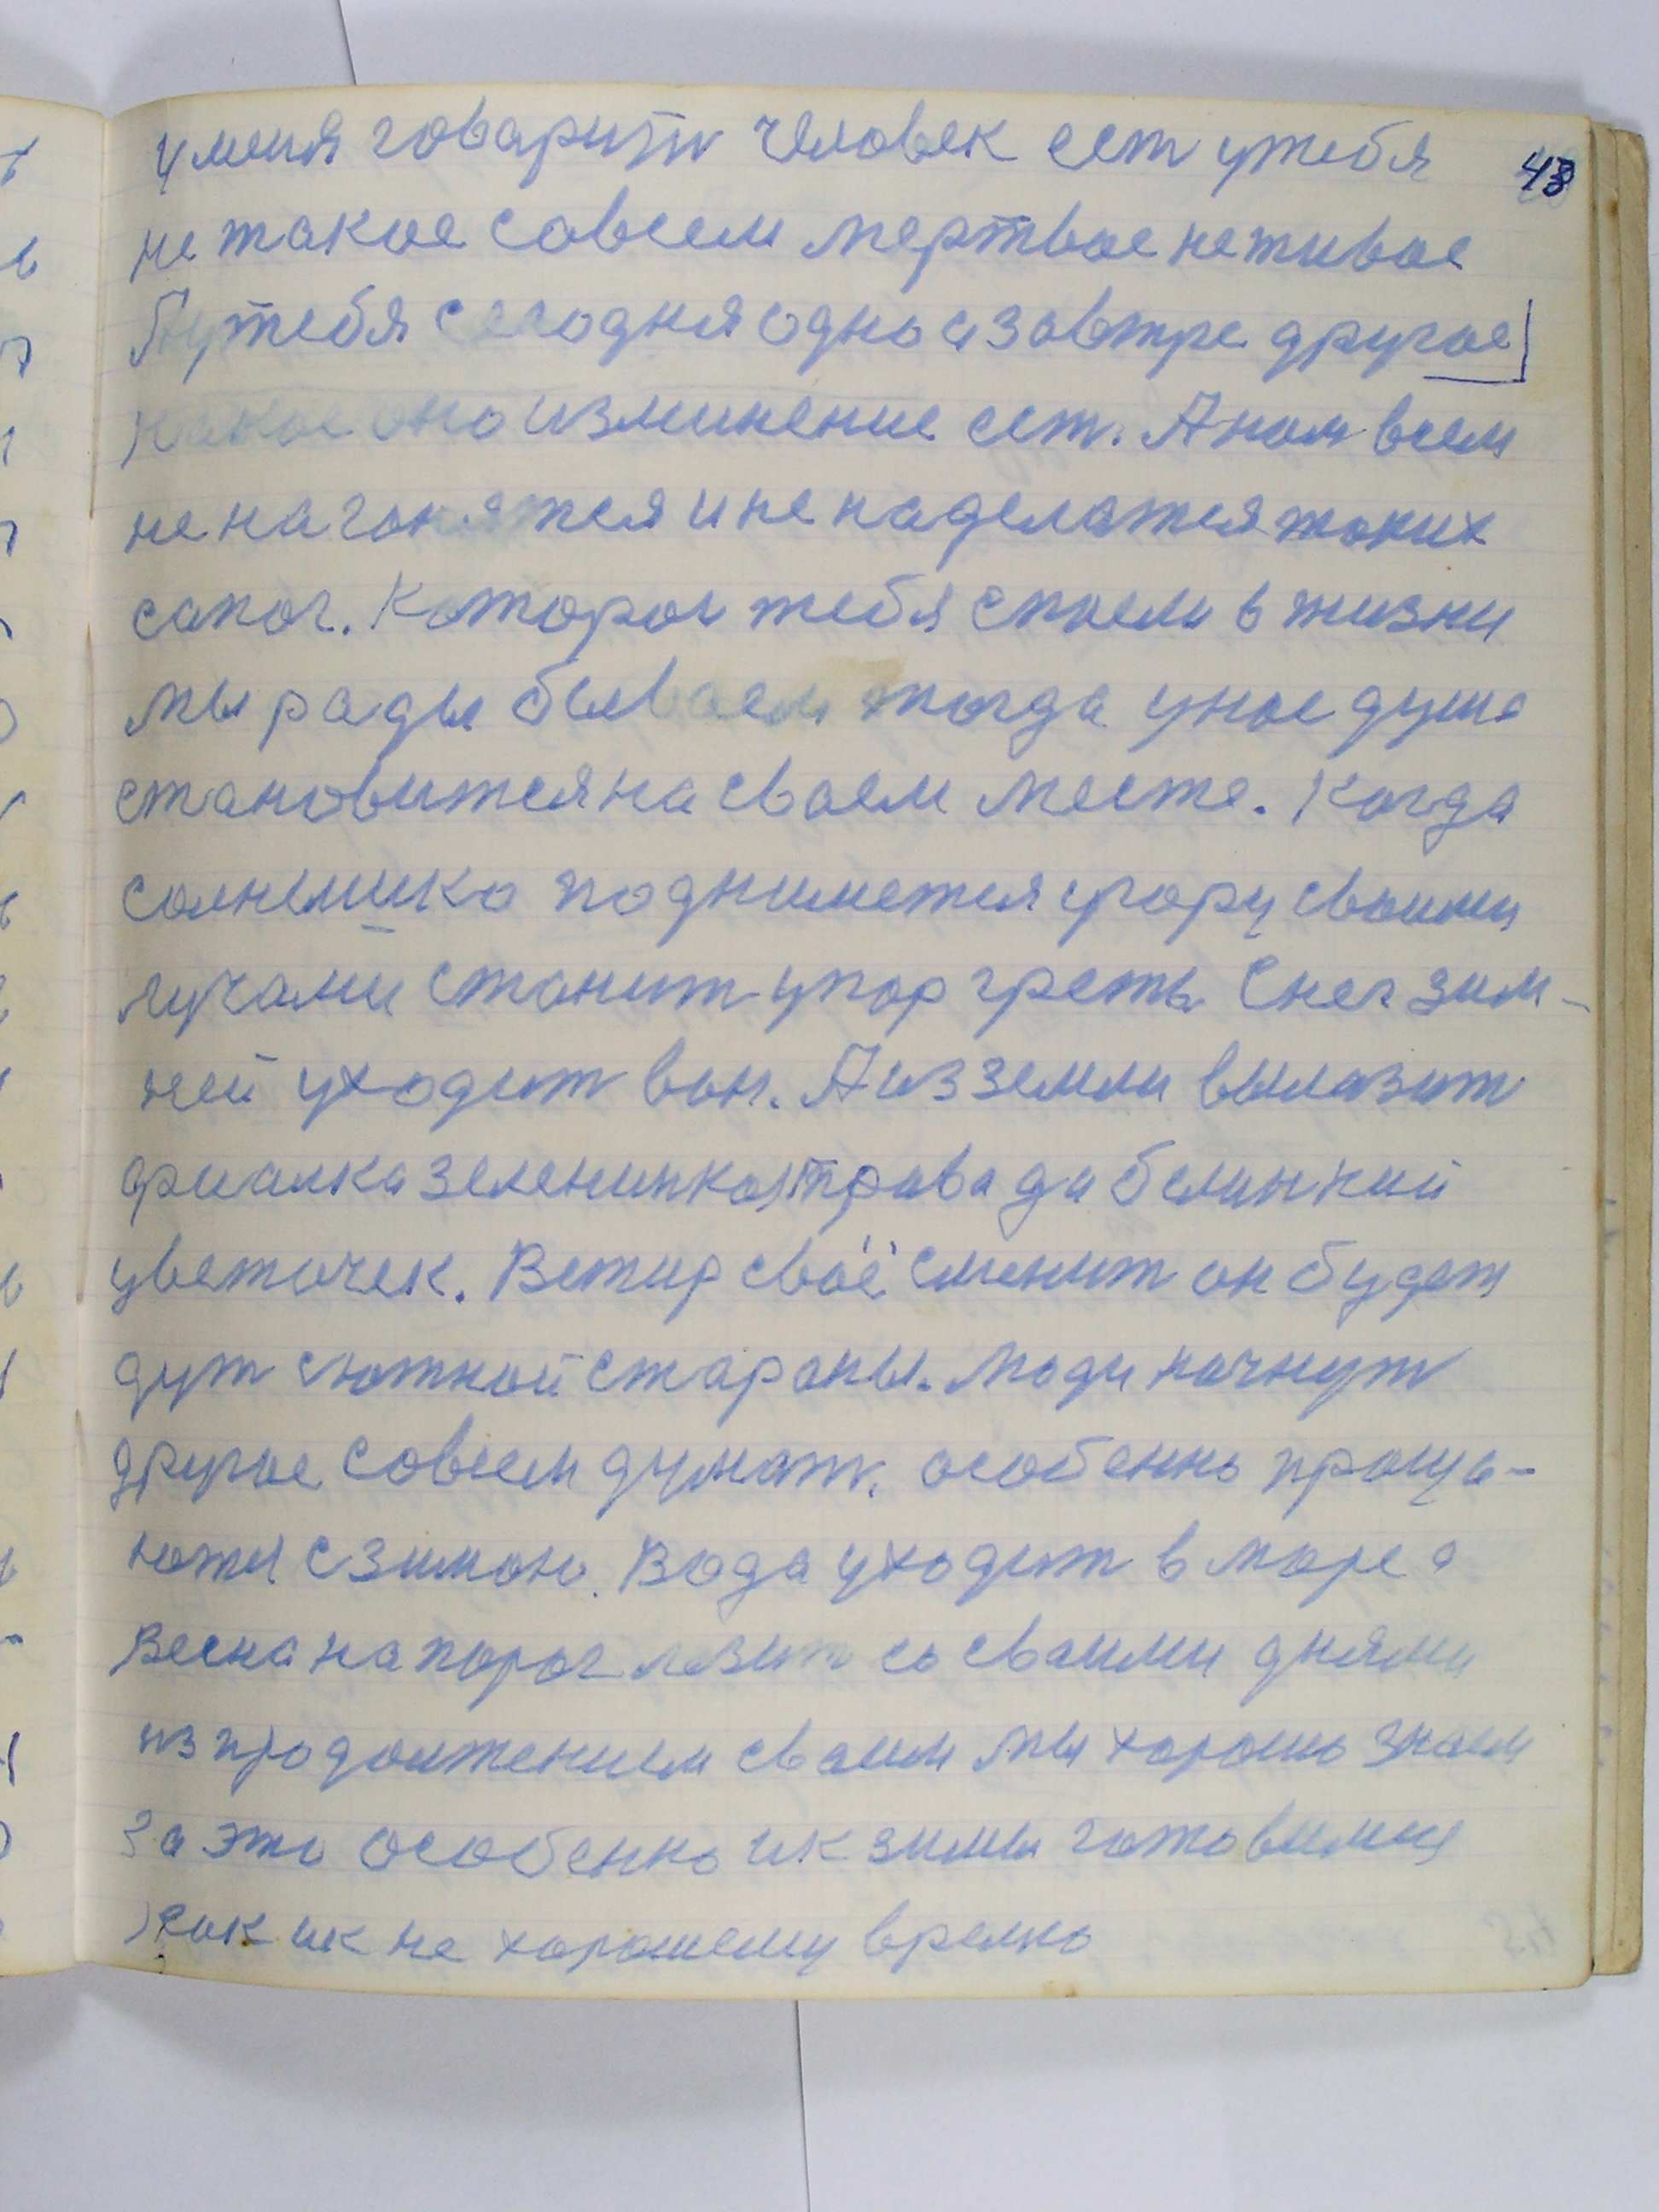 43
умения говарить человек ест утебя
не такое савсем мертвое не живое
Аутебя сегодня одно а завтре другое
какое оно изминение ест. А нам всем
не нагонятся и не наделатся таких
сапог. Которои тебя в жизни
мы рады бываем тогда унас душа
становится на сваем месте. Когда
солнышко подниметея угору сваими
лучами станит упор греть. Снег зим-
ней уходит вон. А из земли вылазит
фиалка зелениnкая трава да белинкий
цветочек. Ветир своё сменит он будет
дут сюжной стараны. Люди начнут
другое совсем думат. особенно проща-
ютя с зимою. Вода уходит в море а
Весна на порог лезит со сваими днями
из продолжением сваим мы хорошо знаем
За это особенно ик зимы готовимся
как ик не хорошему время